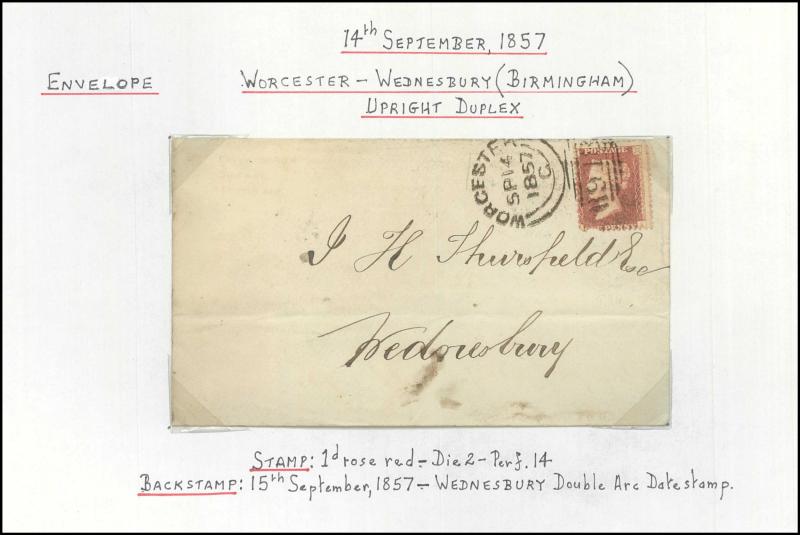 14th SEPTEMBER, 1857
ENVELOPE
WORCESTER - WEDNESBURY (BIRMINGHAM)
UPRIGHT DUPLEX
WORCESTER
SP 14
1857
C
918
J H Thursfield Esq
Wednesbury
STAMP: 1d rose red - Die 2 - Perf. 14
BACKSTAMP: 15th September, 1857 - WEDNESBURY Double Arc Datestamp.